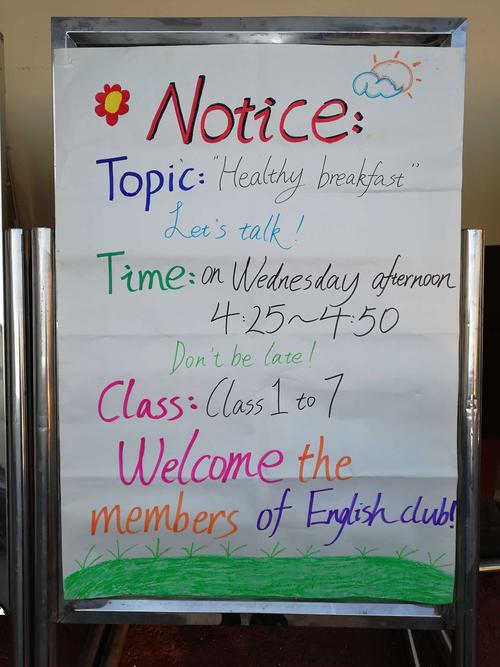 Notice:
Topic: "Healthy breakfast"
Let's talk!
Time: on Wednesday afternoon
4:25~4:50
Don't be late!
Class: Class 1 to 7
Welcome the
members of English club!